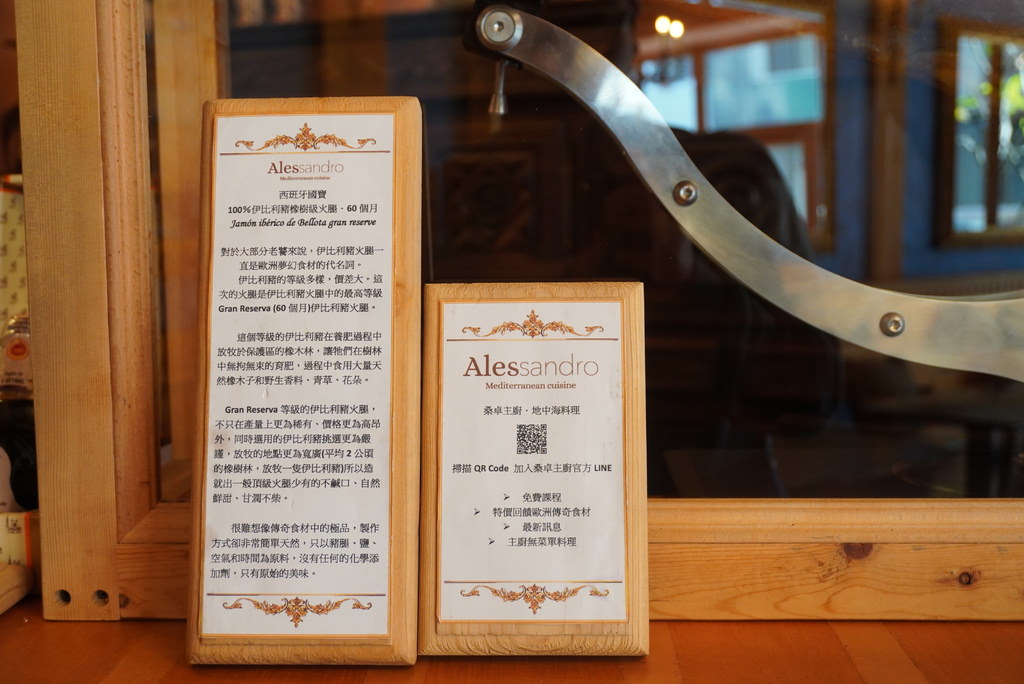 Alessandro
Mediterranean cuisine
西班牙國寶
100%伊比利豬橡樹級火腿．60 個月
Jamón ibérico de Bellota gran reserve
對於大部分老饕來說，伊比利豬火腿一
直是歐洲夢幻食材的代名詞。
伊比利豬的等級多樣，價差大。這
次的火腿是伊比利豬火腿中的最高等級
Gran Reserva (60 個月)伊比利豬火腿。
這個等級的伊比利豬在養肥過程中
放牧於保護區的橡木林，讓牠們在樹林
中無拘無束的育肥，過程中食用大量天
然橡木子和野生香料、青草、花朵。
Gran Reserva 等級的伊比利豬火腿，
不只在產量上更為稀有、價格更為高昂
外，同時選用的伊比利豬挑選更為嚴
謹，放牧的地點更為寬廣(平均 2 公頃
的橡樹林，放牧一隻伊比利豬)所以造
就出一般頂級火腿少有的不鹹口、自然
鮮甜、甘潤不柴。
很難想像傳奇食材中的極品，製作
方式卻非常簡單天然，只以豬腿、鹽、
空氣和時間為原料，沒有任何的化學添
加劑，只有原始的美味。
Alessandro
Mediterranean cuisine
桑卓主廚．地中海料理
掃描 QR Code 加入桑卓主廚官方 LINE
➢ 免費課程
➢ 特價回饋歐洲傳奇食材
➢ 最新訊息
➢ 主廚無菜單料理